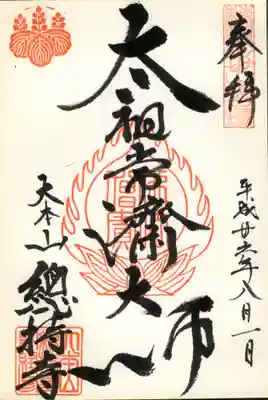 奉拝
平成廿六年八月一日
太祖常濟大師
大本山
總持寺